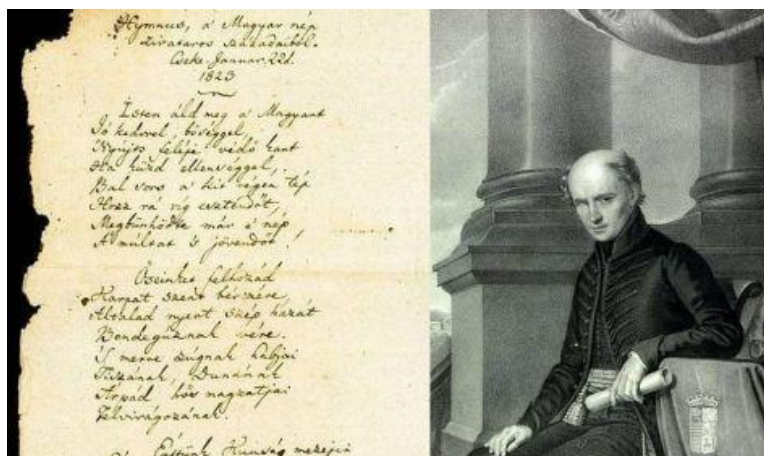 Hymnus, a' Magyar nép
zivataros századaiból.
Cseke Januar. 22d.
1823
Isten áld meg a' Magyart
Jó kedvvel, bőséggel,
Nyújts feléje védő kart
Ha küzd ellenséggel,
Bal sors a' kit régen tép
Hozz rá víg esztendőt,
Megbűnhődte már e' nép
A' multat 's jövendőt!
Őseinket felhozád
Kárpát szent bérczére,
Általad nyert szép hazát
Bendegúznak vére.
'S merre zúgnak habjai
Tiszának, Dunának
Árpád hős magzatjai
Felvirágozának.
Értünk Kunság mezején